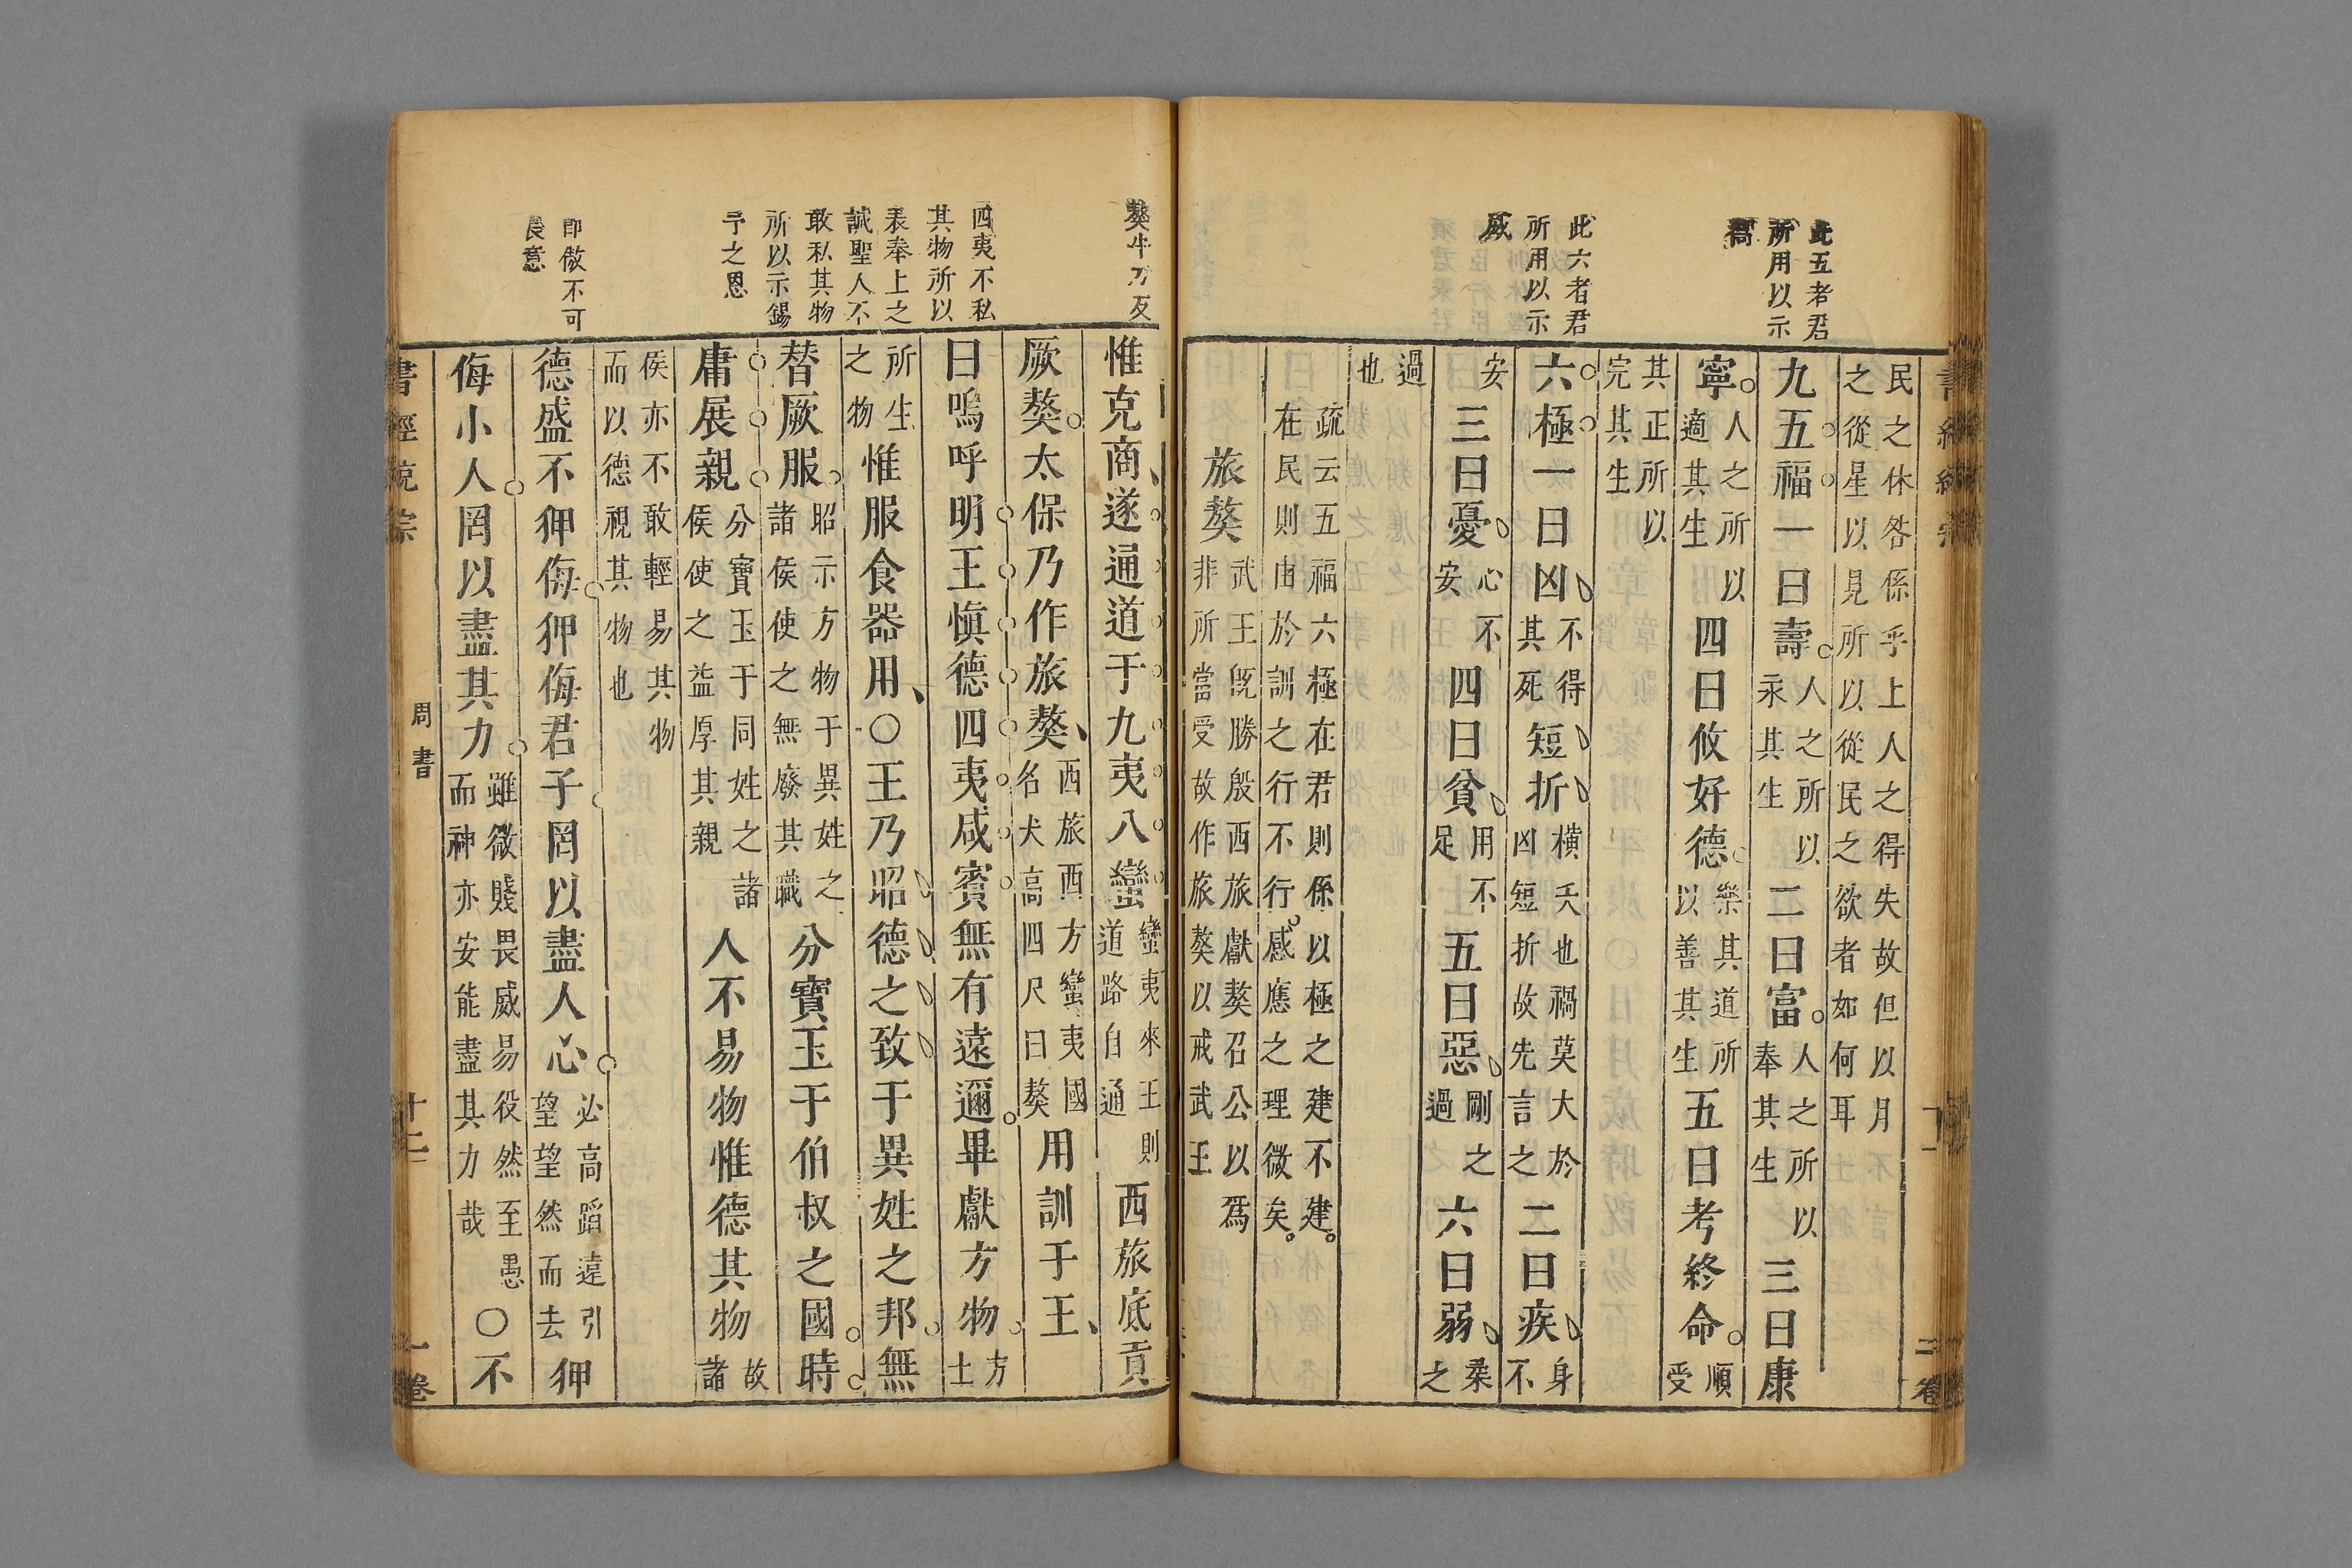 此五者君
所用以示
此六者君
所用以示
威
民之休咎係乎上人之得失故但以月
之從星以見所以從民之欲者如何耳
九五福一曰壽人之所以永其生二曰富人之所以奉其生三曰康
寧人之所以適其生四曰攸好德樂其道所以善其生五曰考終命順受
其正所以完其生
六極一曰凶不得其死短折橫夭也禍莫大於凶短折故先言之二曰疾身不
安三曰憂心不安四曰貧用不足五曰惡剛之過六曰弱柔之
過也
疏云五福六極在君則係以極之建不建
在民則由於訓之行不行感應之理微矣
旅獒武王旣勝殷西旅獻獒召公以爲非所當受故作旅獒以戒武王
獒牛刀反
四夷不私
其物所以
表奉上之
誠聖人不
敢私其物
所以示錫
予之恩
卽傲不可
長意
惟克商遂通道于九夷八蠻蠻夷來王則道路自通西旅底貢
厥獒太保乃作旅獒西旅西方蠻夷國名犬高四尺曰獒用訓于王
曰嗚呼明王慎德四夷咸賓無有遠邇畢獻方物方土
所生之物惟服食器用○王乃昭德之致于異姓之邦無
替厥服昭示方物于異姓之諸侯使之無廢其職分寶玉于伯叔之國時
庸展親分寶玉于同姓之諸侯使之益厚其親人不易物惟德其物故諸
侯亦不敢輕易其物而以德視其物也
德盛不狎侮狎侮君子罔以盡人心必高蹈遠引望望然而去狎
侮小人罔以盡其力雖微賤畏威易役然至愚而神亦安能盡其力哉○不
書經 宗
周書
十二
卷